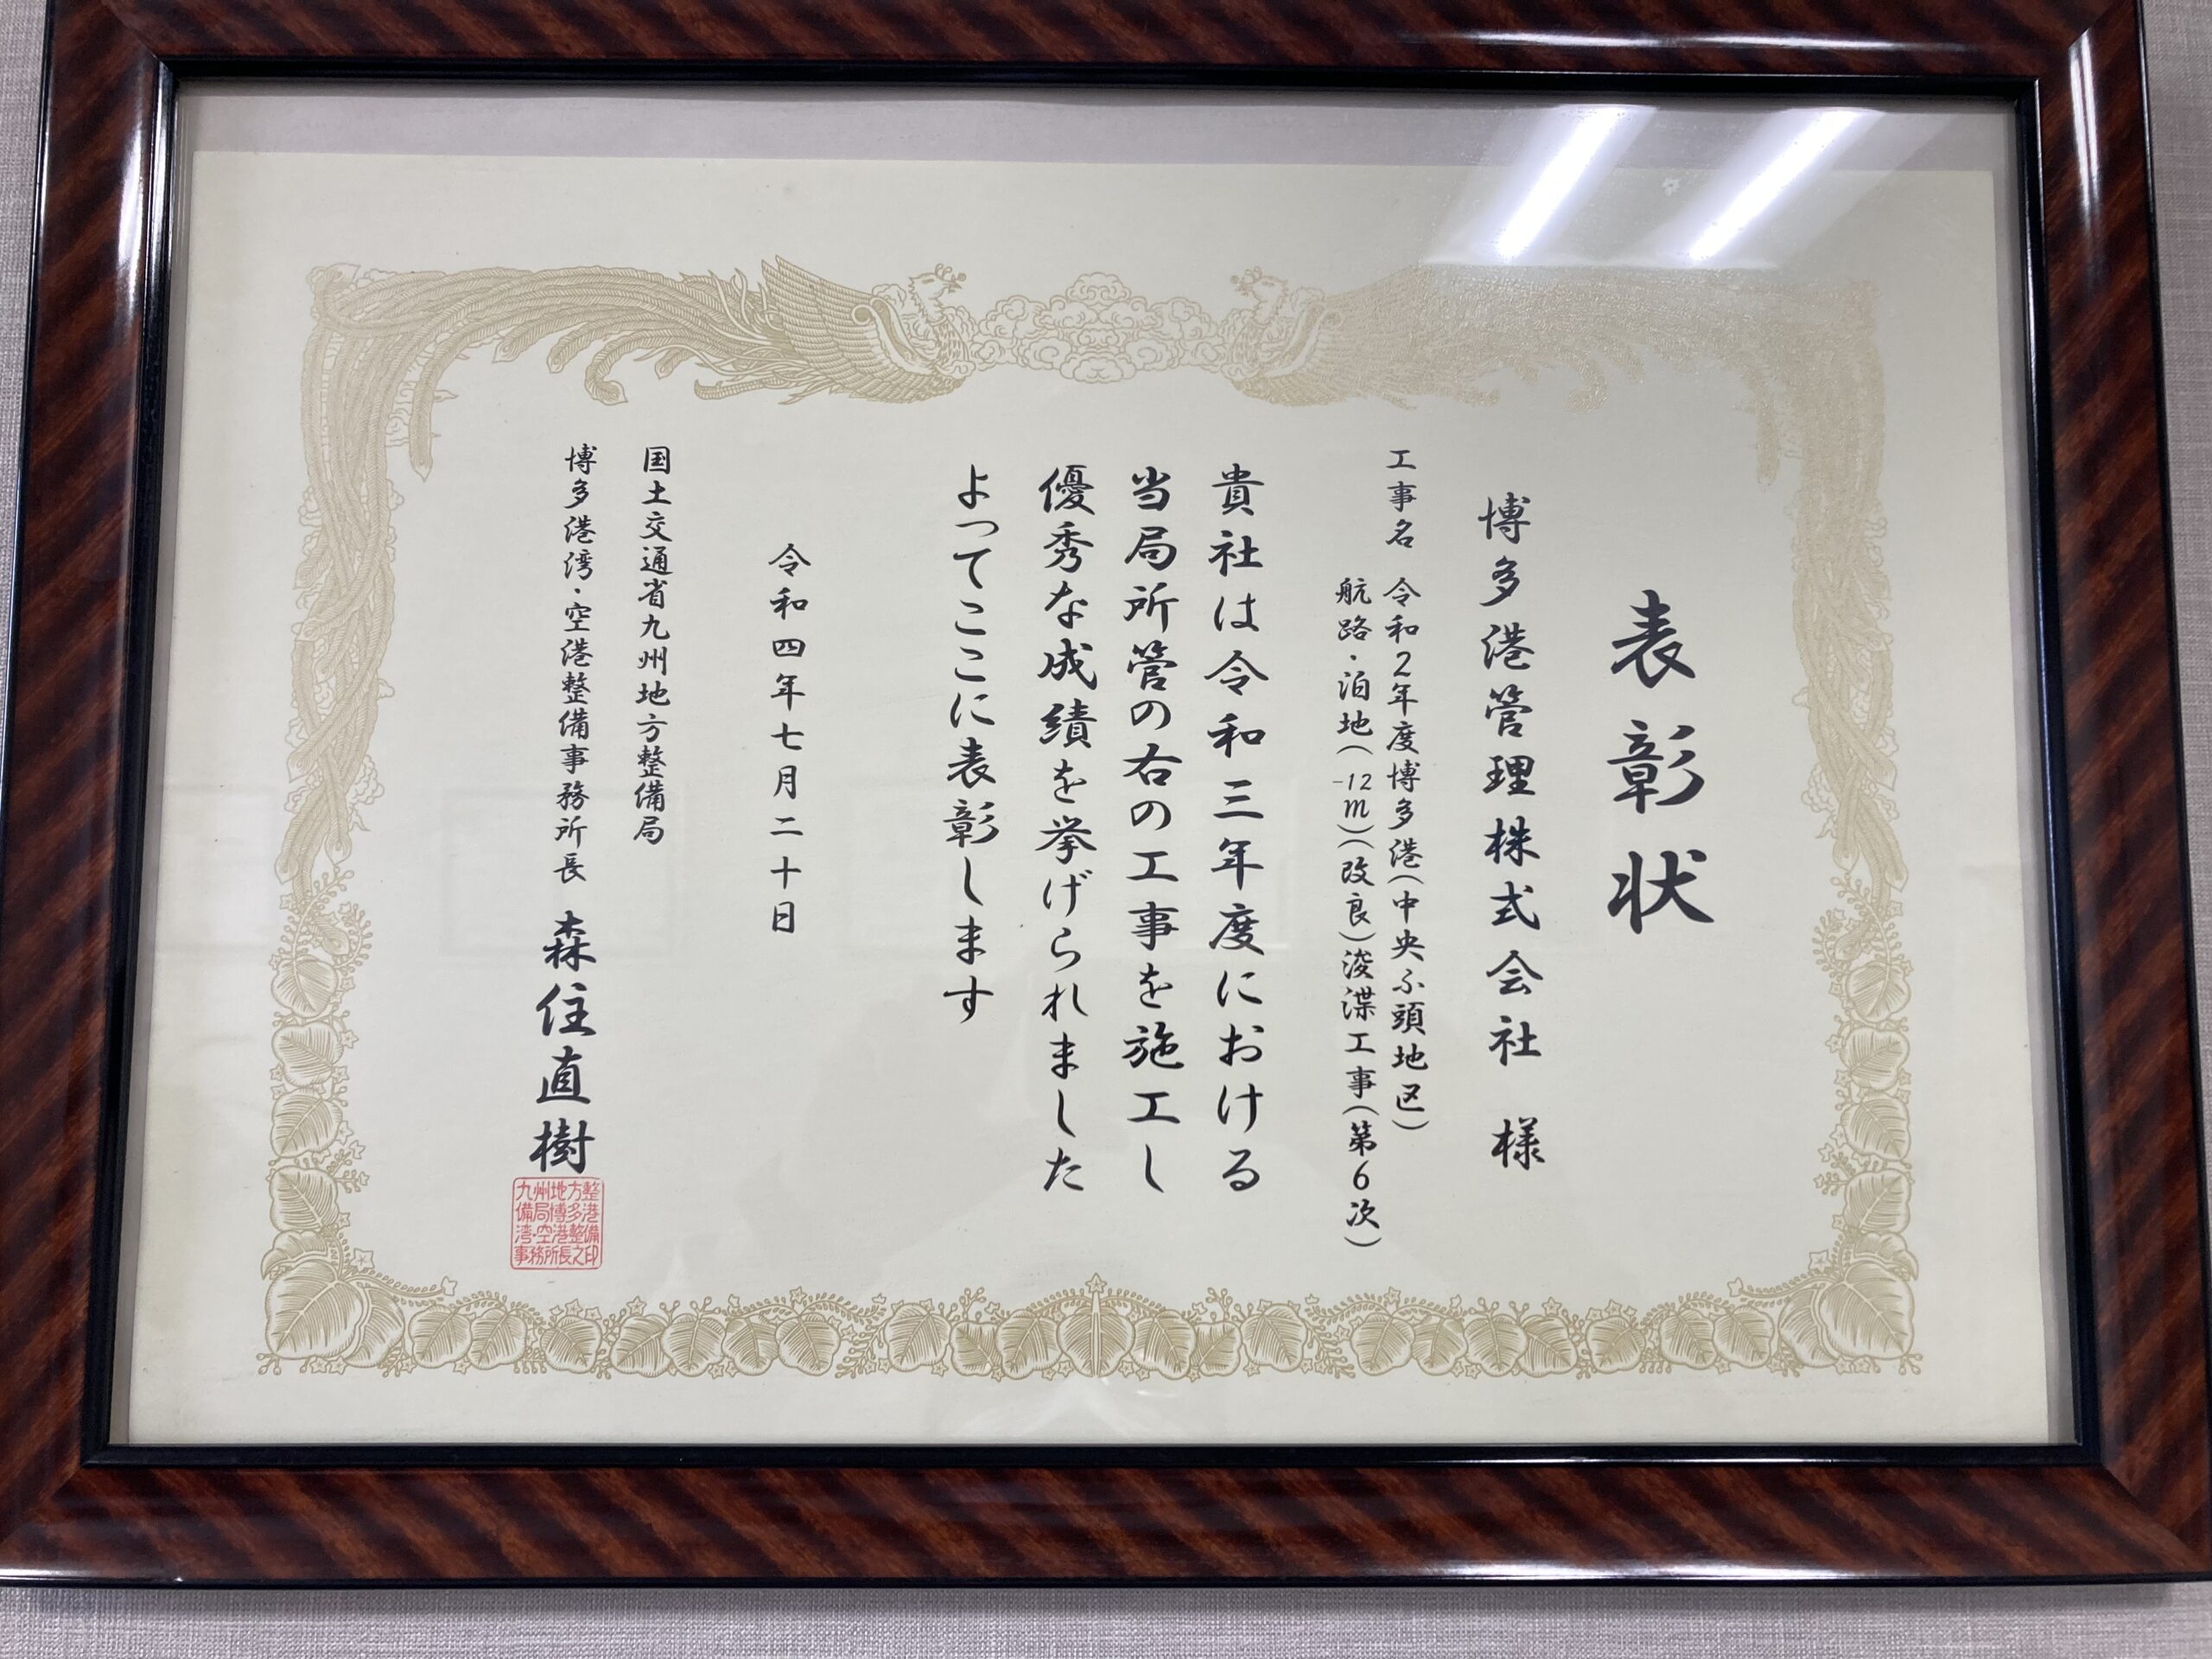 表彰状
博多港管理株式会社 様
工事名 令和2年度博多港(中央ふ頭地区)
航路・泊地(-12m)(改良)浚渫工事(第6次)
貴社は令和三年度における
当局所管の右の工事を施工し
優秀な成績を挙げられました
よってここに表彰します
令和四年七月二十日
国土交通省九州地方整備局
博多港湾・空港整備事務所長 森住直樹
九州地方整
備局博多港
湾・空港整備
事務所長之印